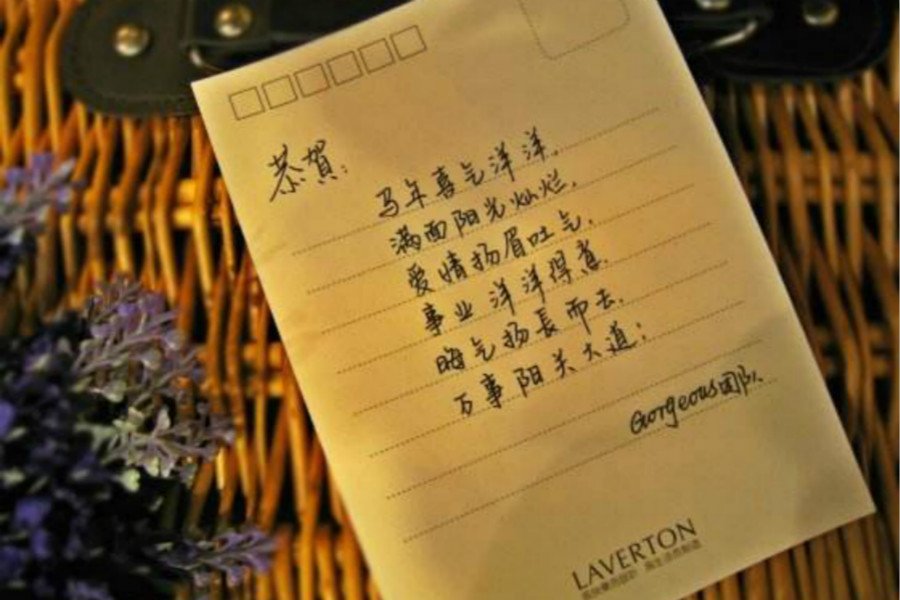 恭賀:
马年喜气洋洋,
满面阳光灿烂,
爱情扬眉吐气,
事业洋洋得意,
晦气扬長而去,
万事阳关大道;
Gorgeous团队
LAVERTON